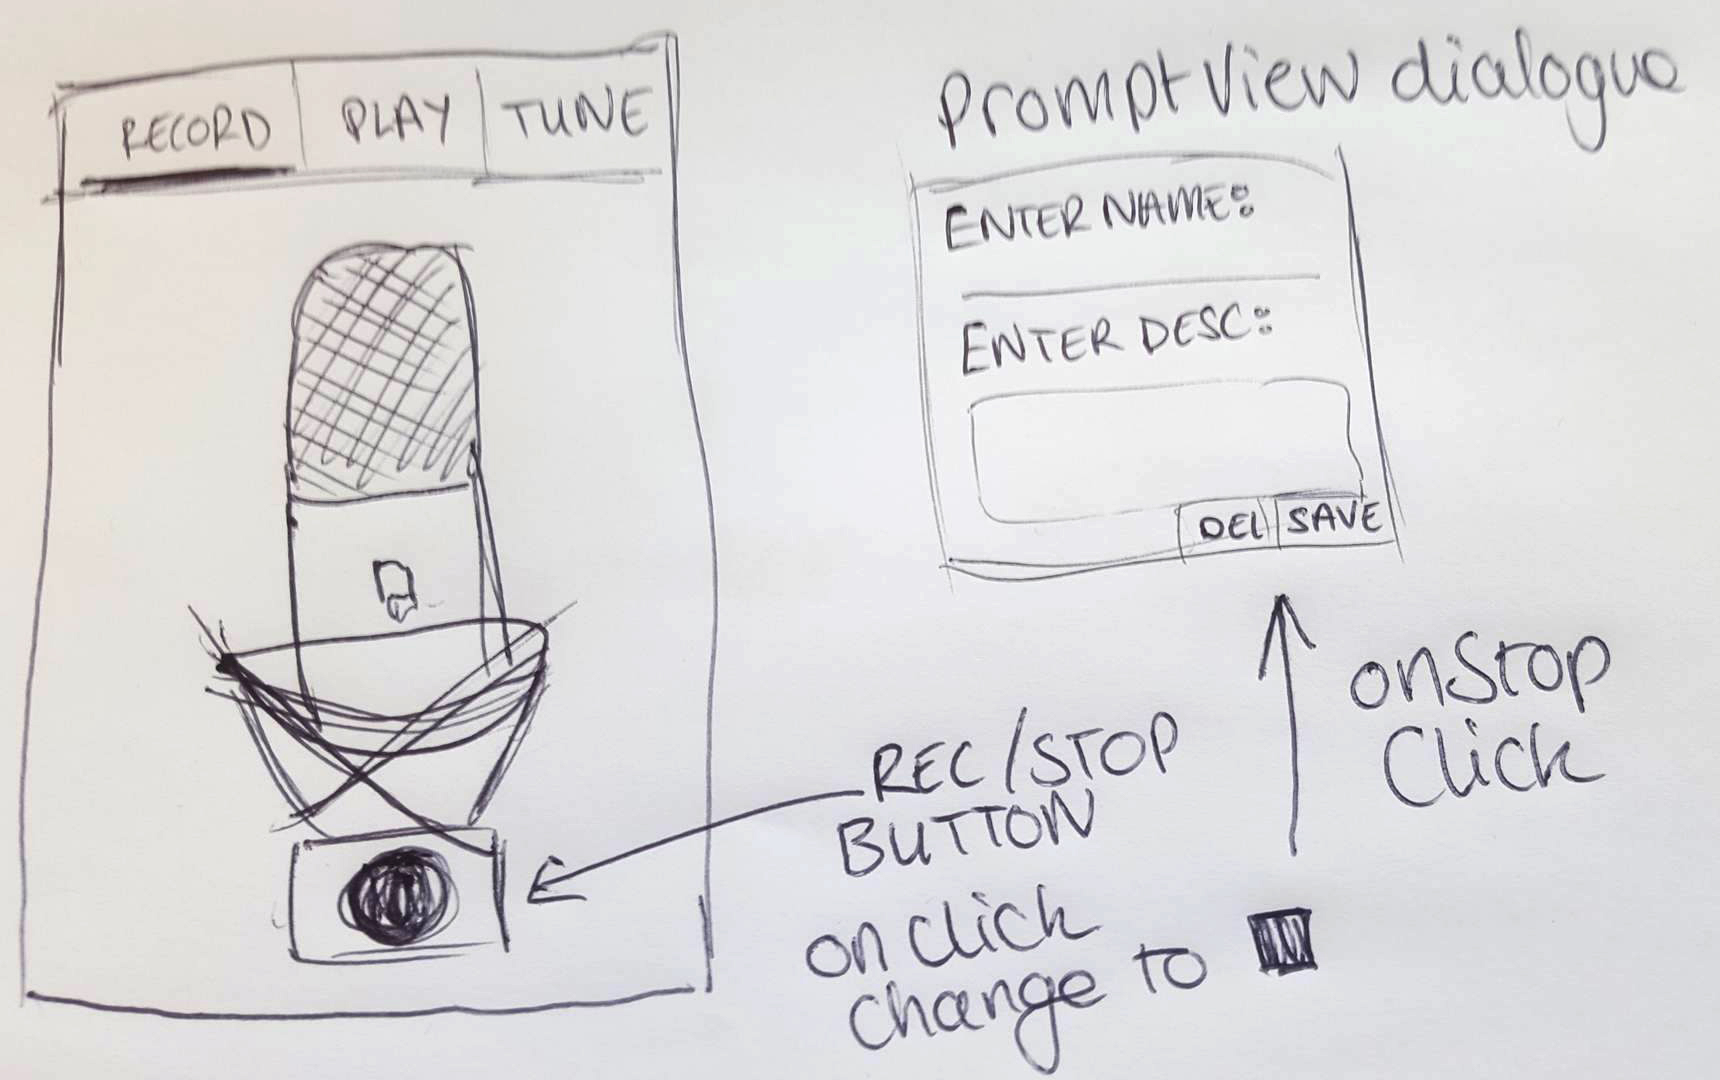 RECORD PLAY TUNE
Prompt View dialogue
ENTER NAME:
ENTER DESC:
DEL SAVE
onStop
Click
REC/STOP
BUTTON
on click
change to